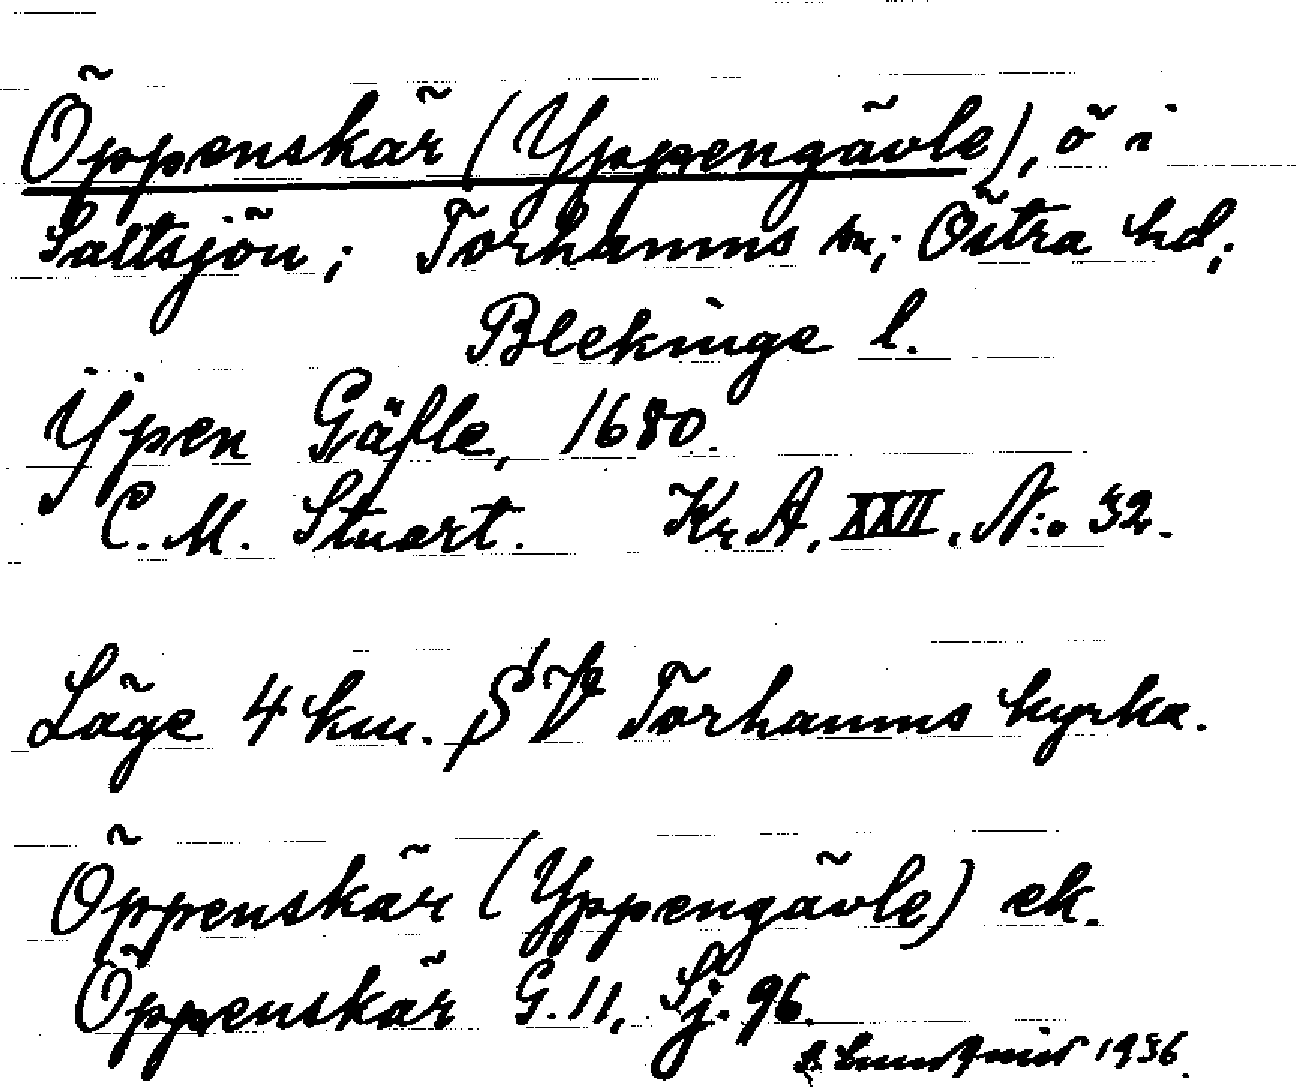 Öppenskär (Yppengävle), ö i
Saltsjön; Torhamns sn; Östra hd;
Blekinge l.
Ypen Gäfle, 1680.
C. M. Stuart. Kr. A, XXVI, N:o 32.
Läge 4 km. SV Torhamns kyrka.
Öppenskär (Yppengävle) ek.
Öppenskär G. 11, Sj. 96.
1936.